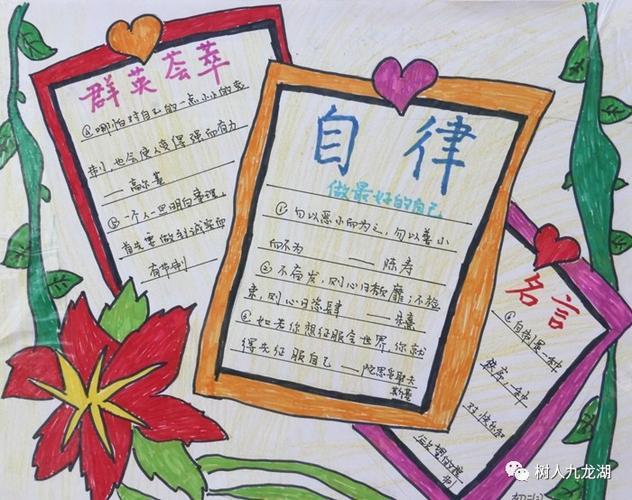 群英荟萃
④哪怕对自己的一点小小的克
制,也会使人变得强而有力
—— 高尔基
⑤一个人一旦明白事理,
首先要做到诚实而
有节制
自律
做最好的自己
①勿以恶小而为之,勿以善小
而不为 —— 陈寿
②不奋发,则心日颓靡;不检
束,则心日恣肆 —— 朱熹
③如若你想征服全世界,你就
得先征服自己 ——陀思妥耶夫
斯基
名言
⑥自制是一种
秩序,一种
对快乐和
欲望的控
制
树人九龙湖